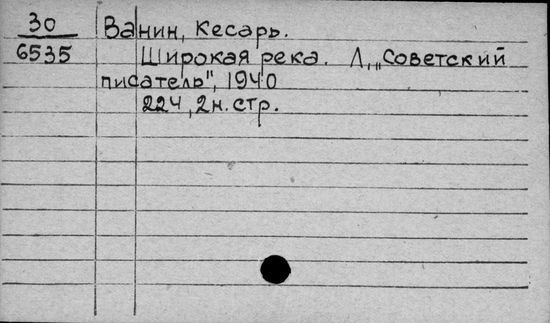 30 Ванин, Кесарь.
6535 Широкая река. Л., „Советский
писатель", 1940
224, 2н. стр.